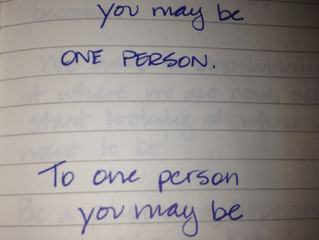 you may be
ONE PERSON.
To one person
you may be